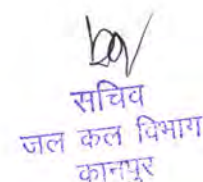 सचिव
जल कल विभाग
कानपुर